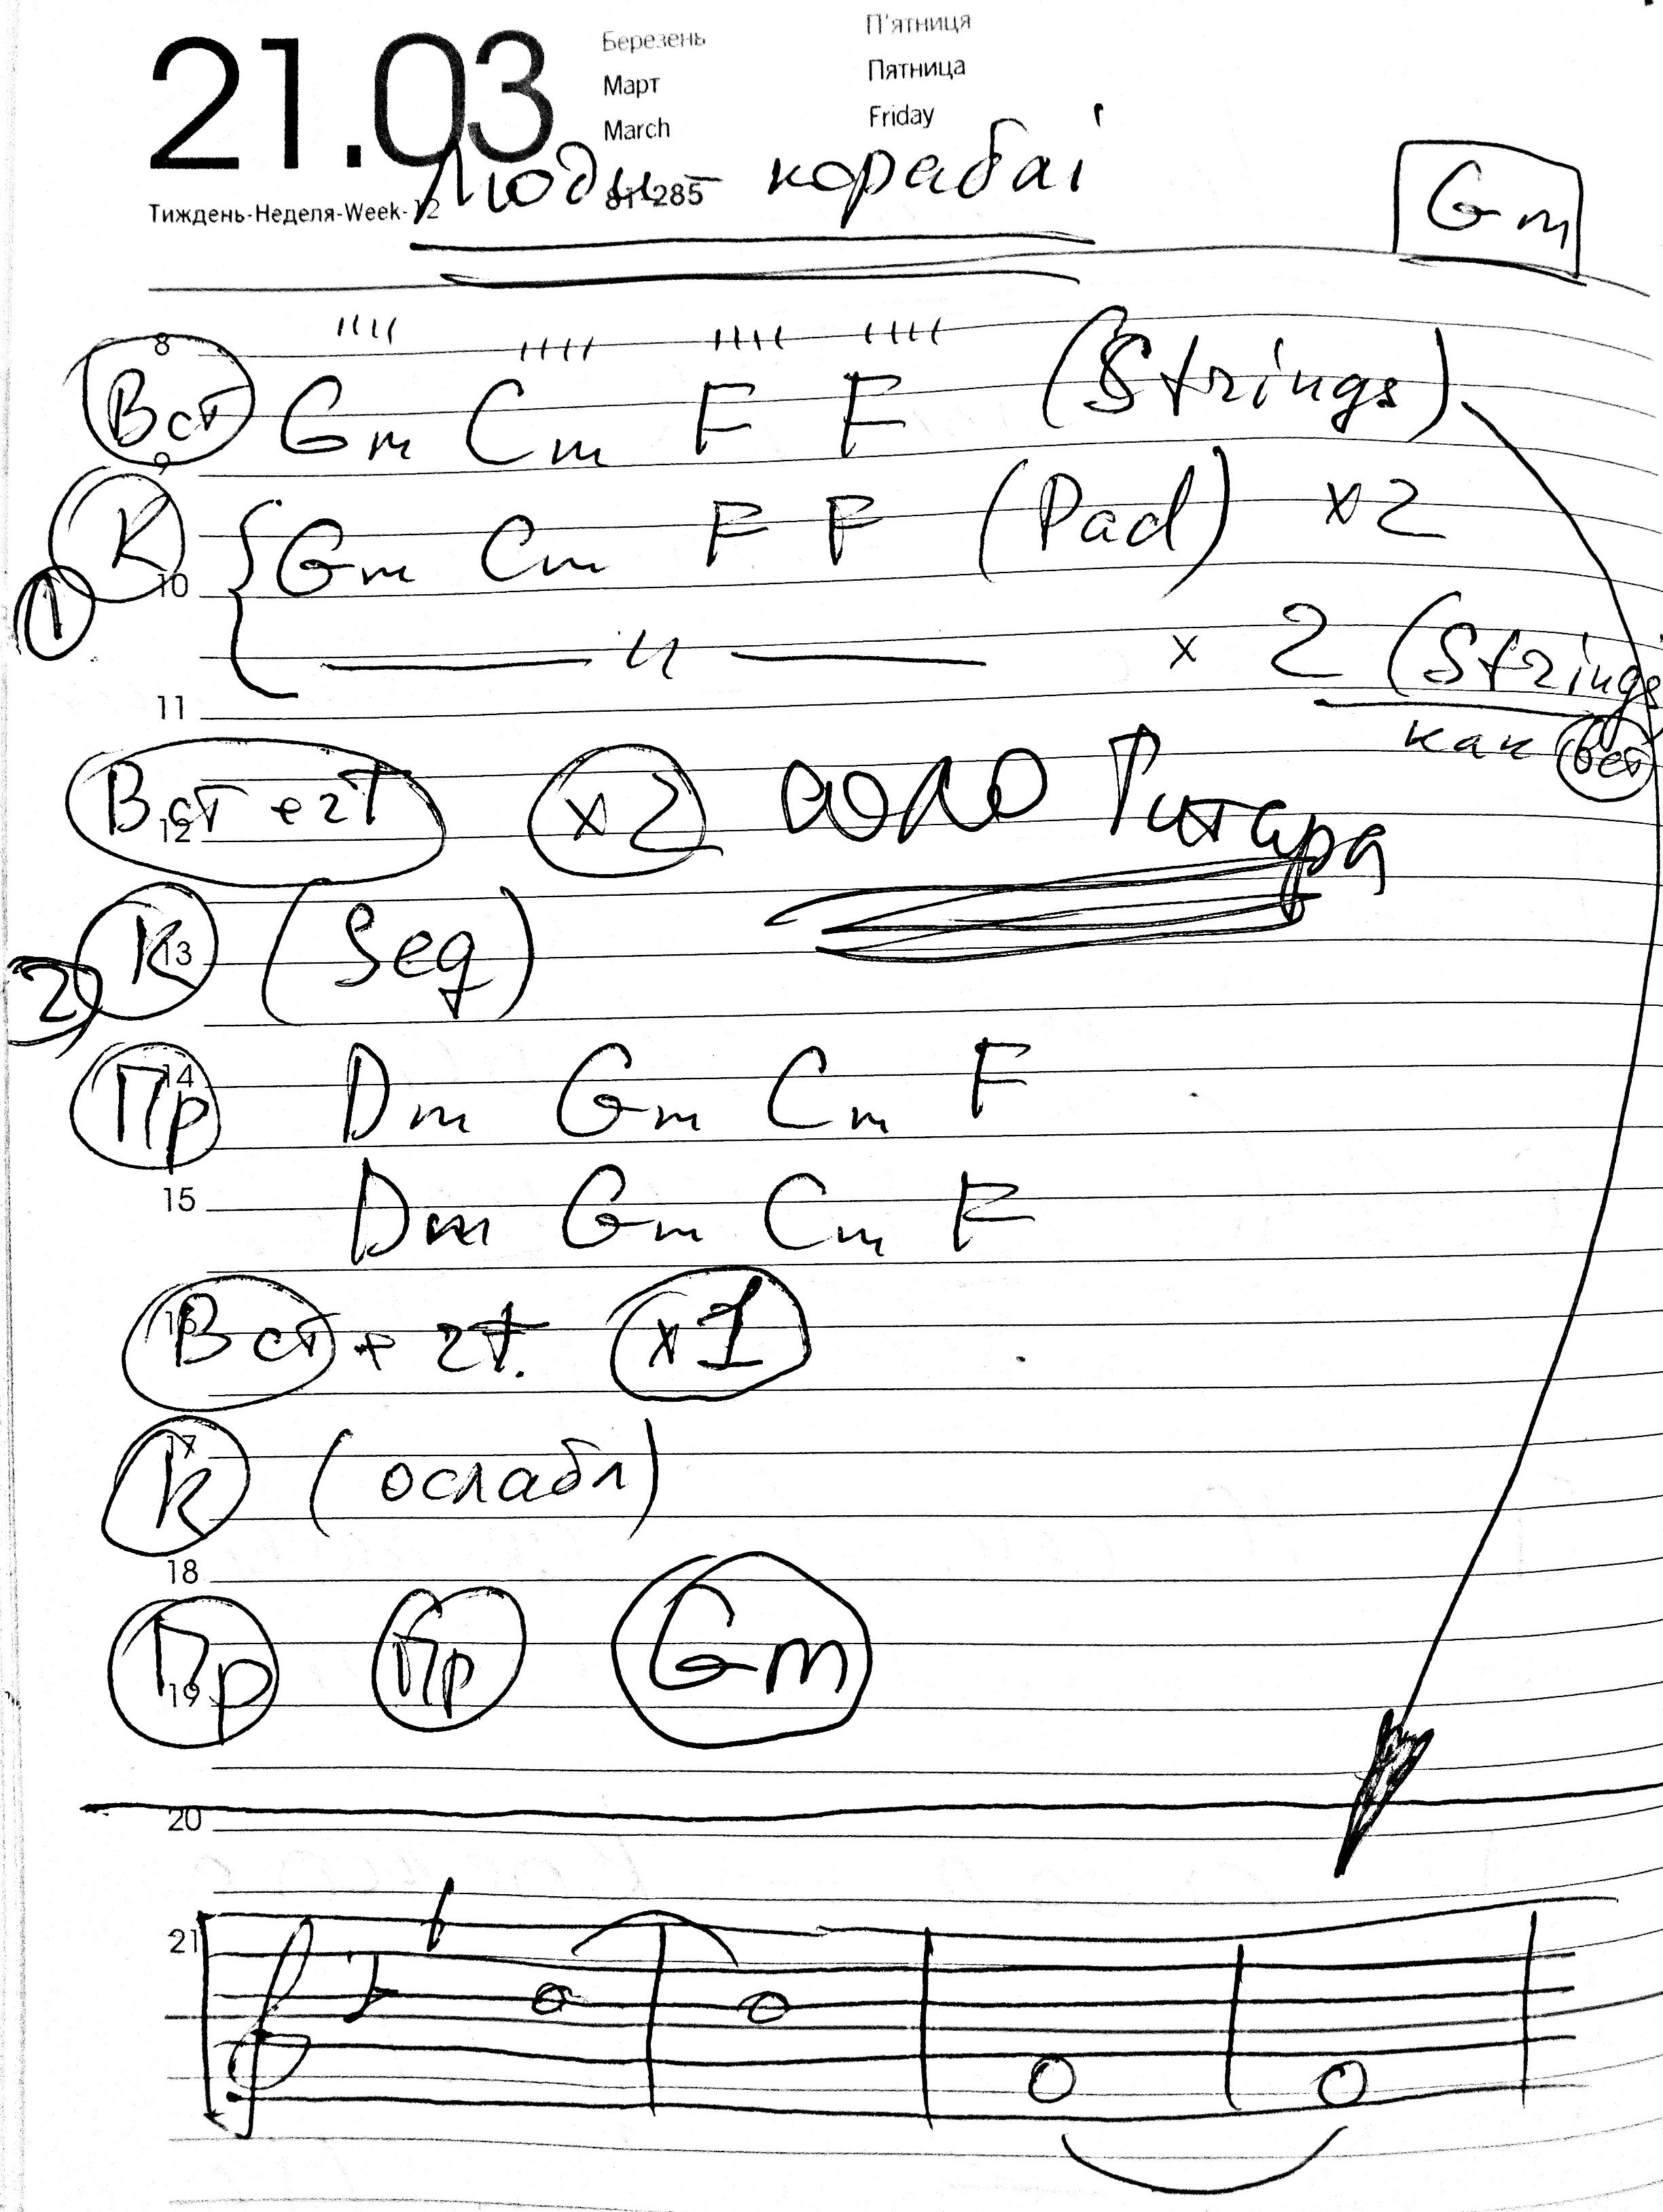 21.03
Березень П'ятниця
Март Пятница
March Friday
Тиждень-Неделя-Week-12 81-285
Люди - кораблі
Gm
8
Вст Gm Cm F F (Strings)
9
К Gm Cm F F (Pad) x2
10
1 —— 〃 —— x 2 (Strings)
11
как вст
Вст + 2т x2 соло Гитара
12
2) К (Seq)
13
14
Пр Dm Gm Cm F
15
Dm Gm Cm F
16
Вст + 2т. x1
17
К (ослабл)
18
Пр Пр Gm
19
20
21